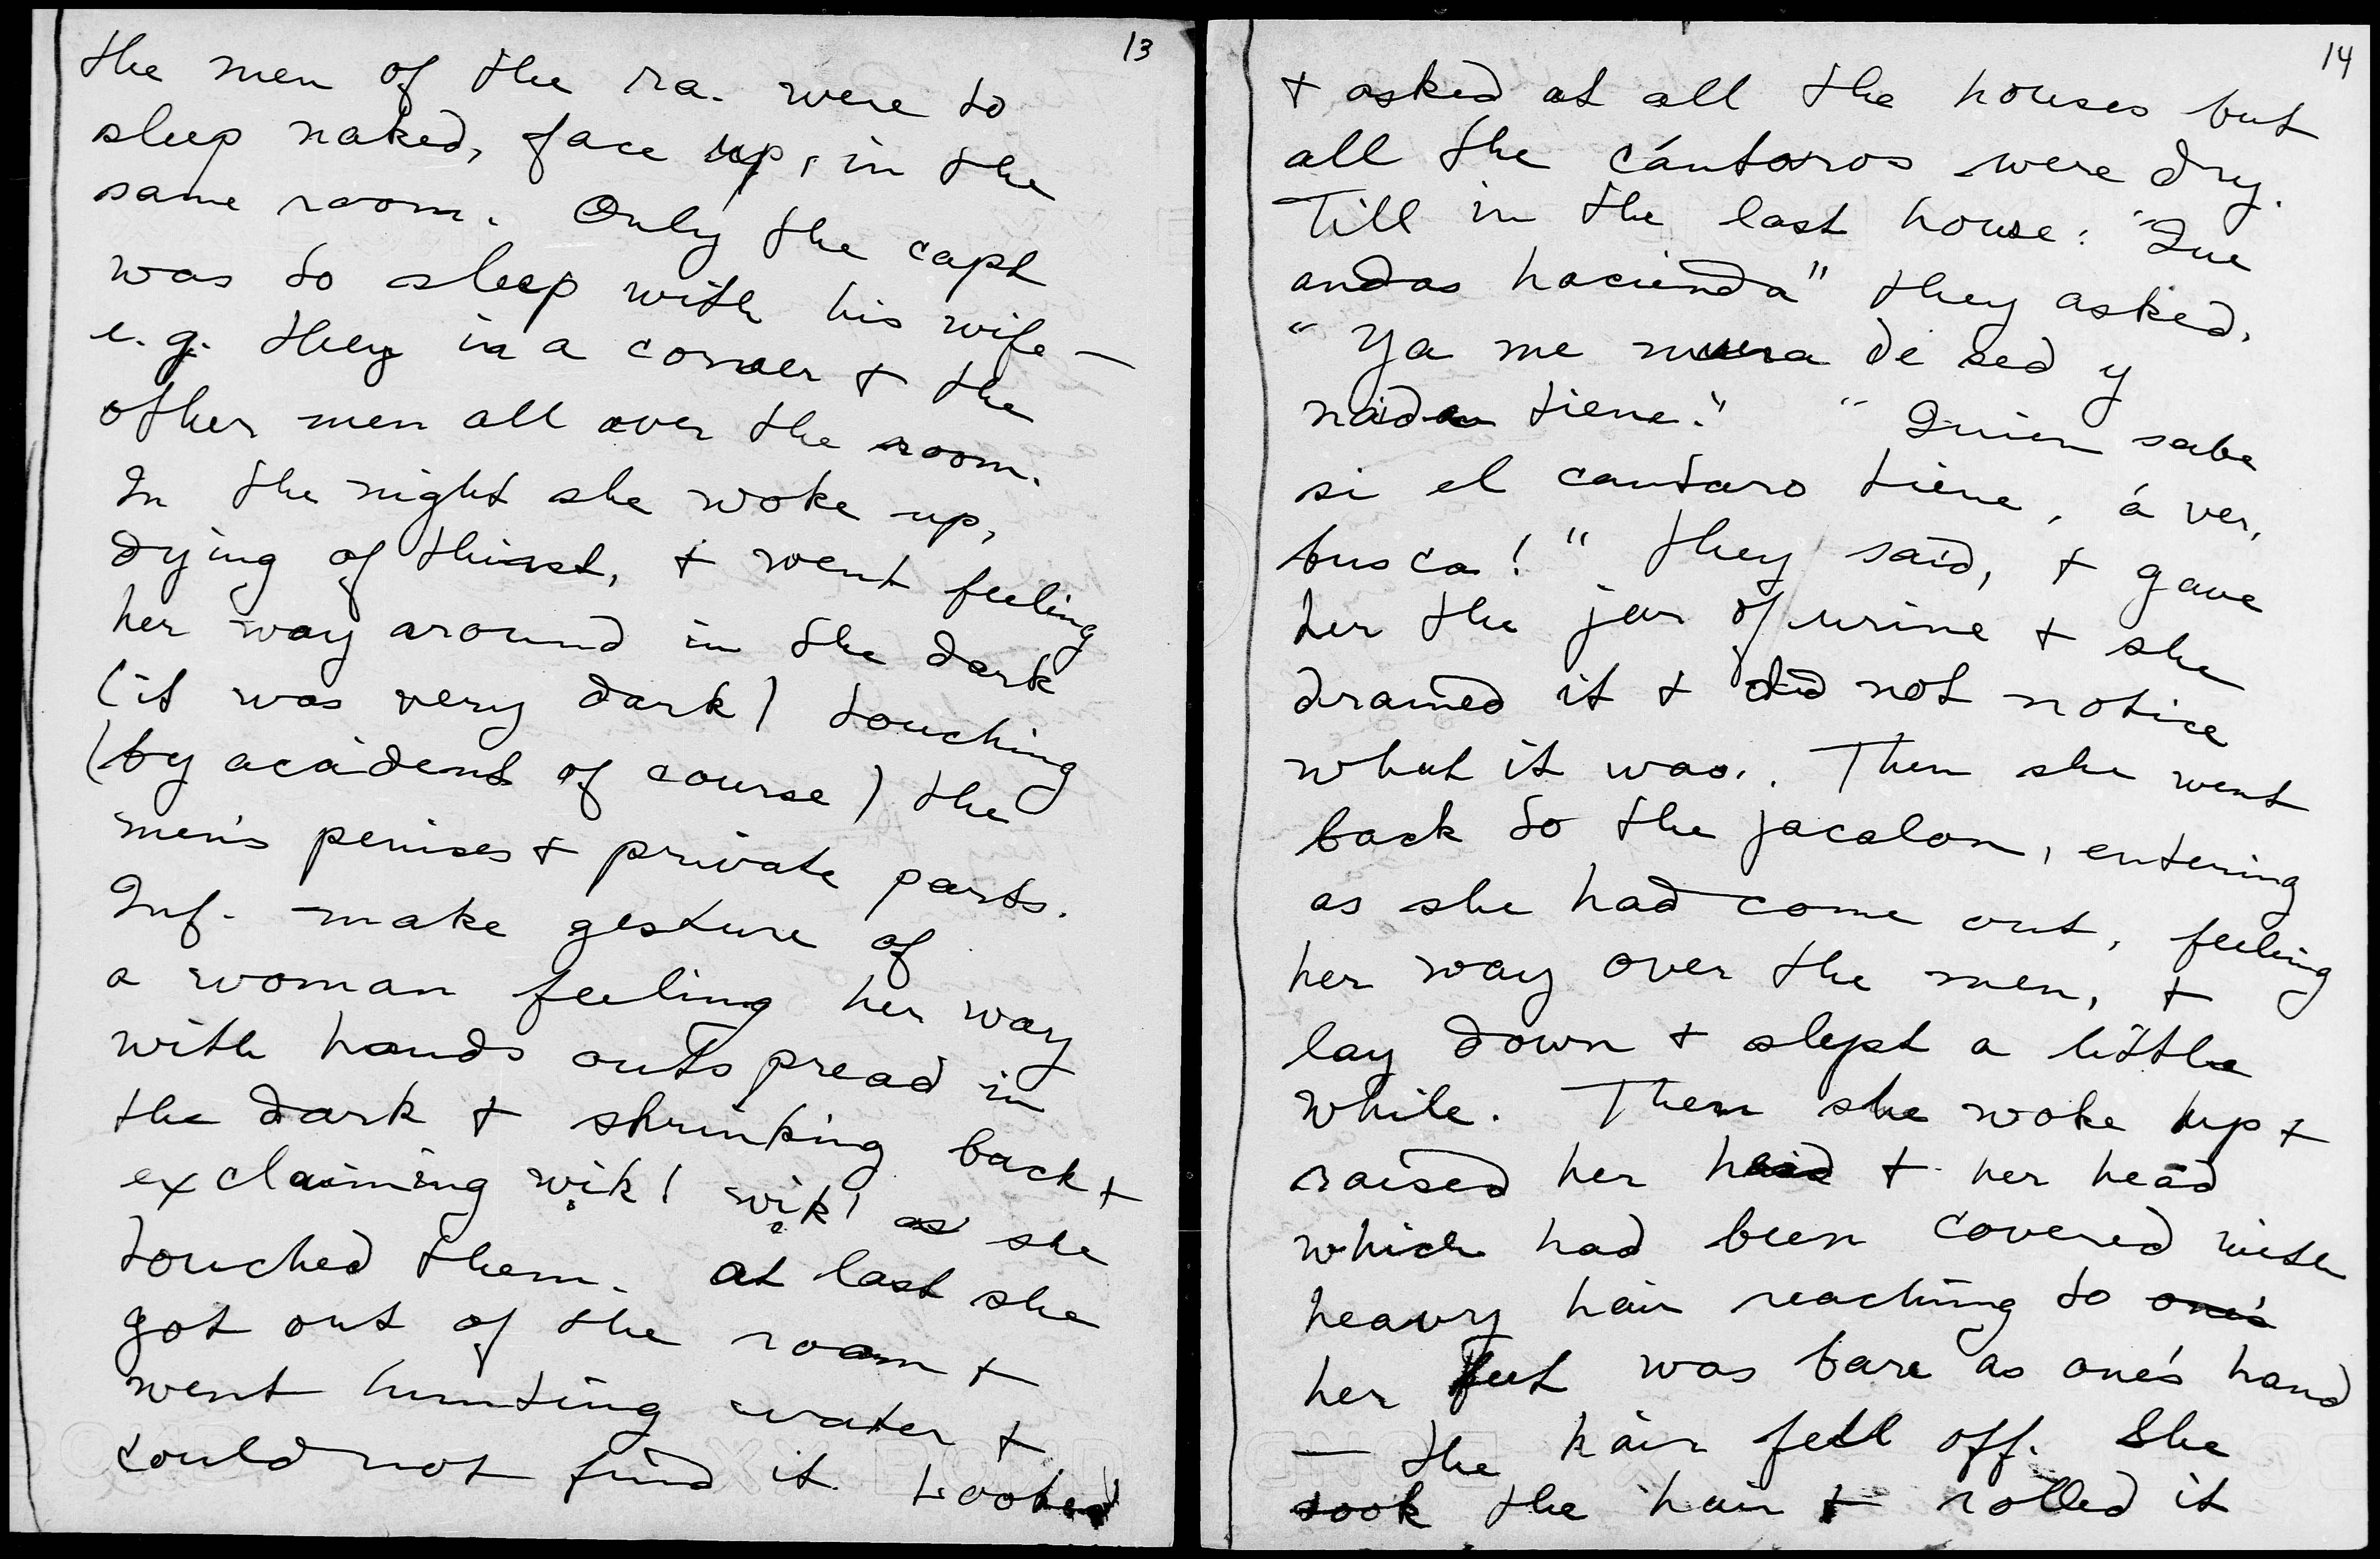 13
the men of the ra. were to
sleep naked, face up, in the
same room. Only the capt
was to sleep with his wife —
e.g. they in a corner + the
other men all over the room.
In the night she woke up,
dying of thirst, + went feeling
her way around in the dark
(it was very dark) touching
(by acident of course) the
men's penises + private parts.
Inf. make gesture of
a woman feeling her way
with hands outspread in
the dark + shrinking back +
exclaiming wik! wik! as she
touched them. at last she
got out of the room +
went hunting water +
could not find it. Looked
14
+ asked at all the houses but
all the cántaros were dry.
Till in the last house: "Que
andas hacienda" they asked.
"Ya me muera de sed y
nada tiene." "Quien sabe
si el cantaro tiene, á ver,
busca!" they said, + gave
her the jar of urine + she
drained it + did not notice
what it was. Then she went
back to the jacalon, entering
as she had come out, feeling
her way over the men, +
lay down + slept a little
while. Then she woke up +
raised her head + her head
which had been covered with
heavy hair reaching to one's
her feet was bare as one's hand
— the hair fell off. She
took the hair + rolled it